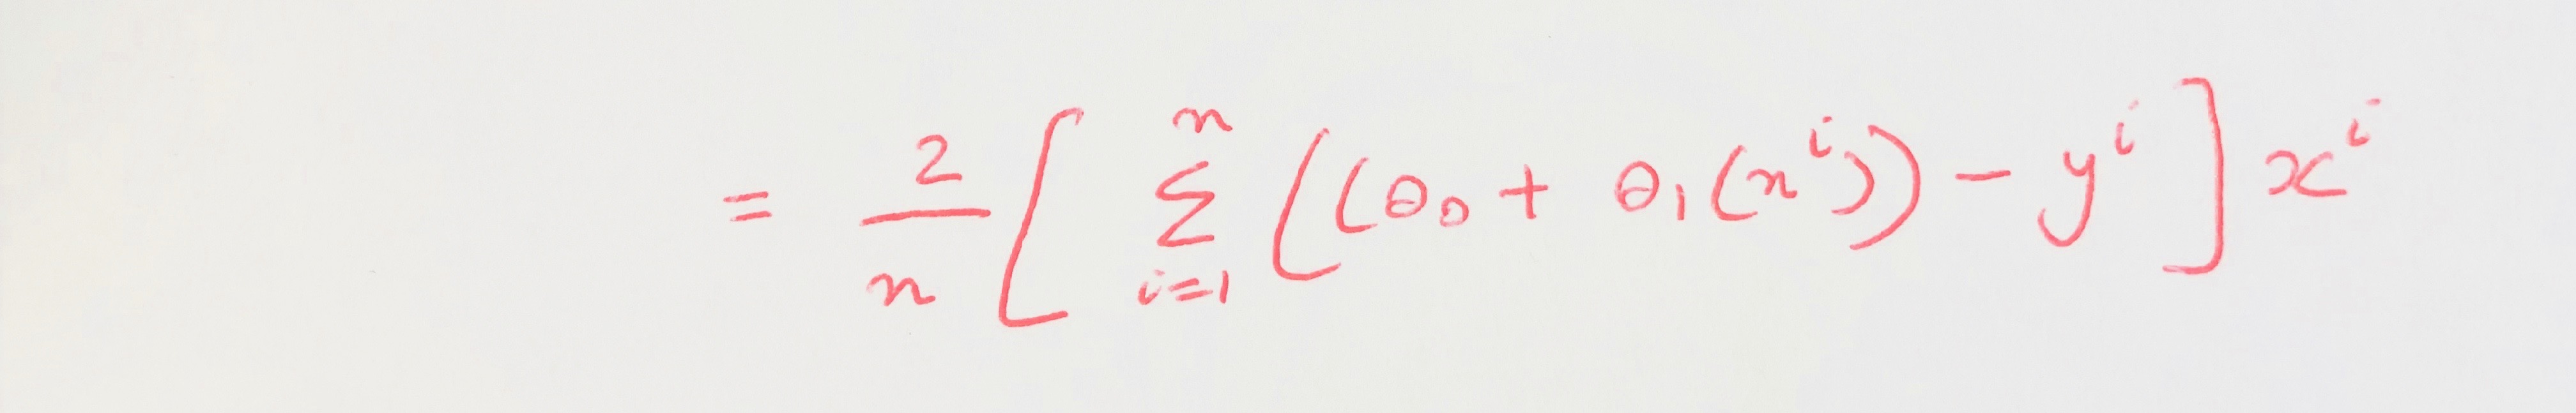 = \frac{2}{n} \left[ \sum_{i=1}^{n} \left( (θ_0 + θ_1(x^i)) - y^i \right] x^i